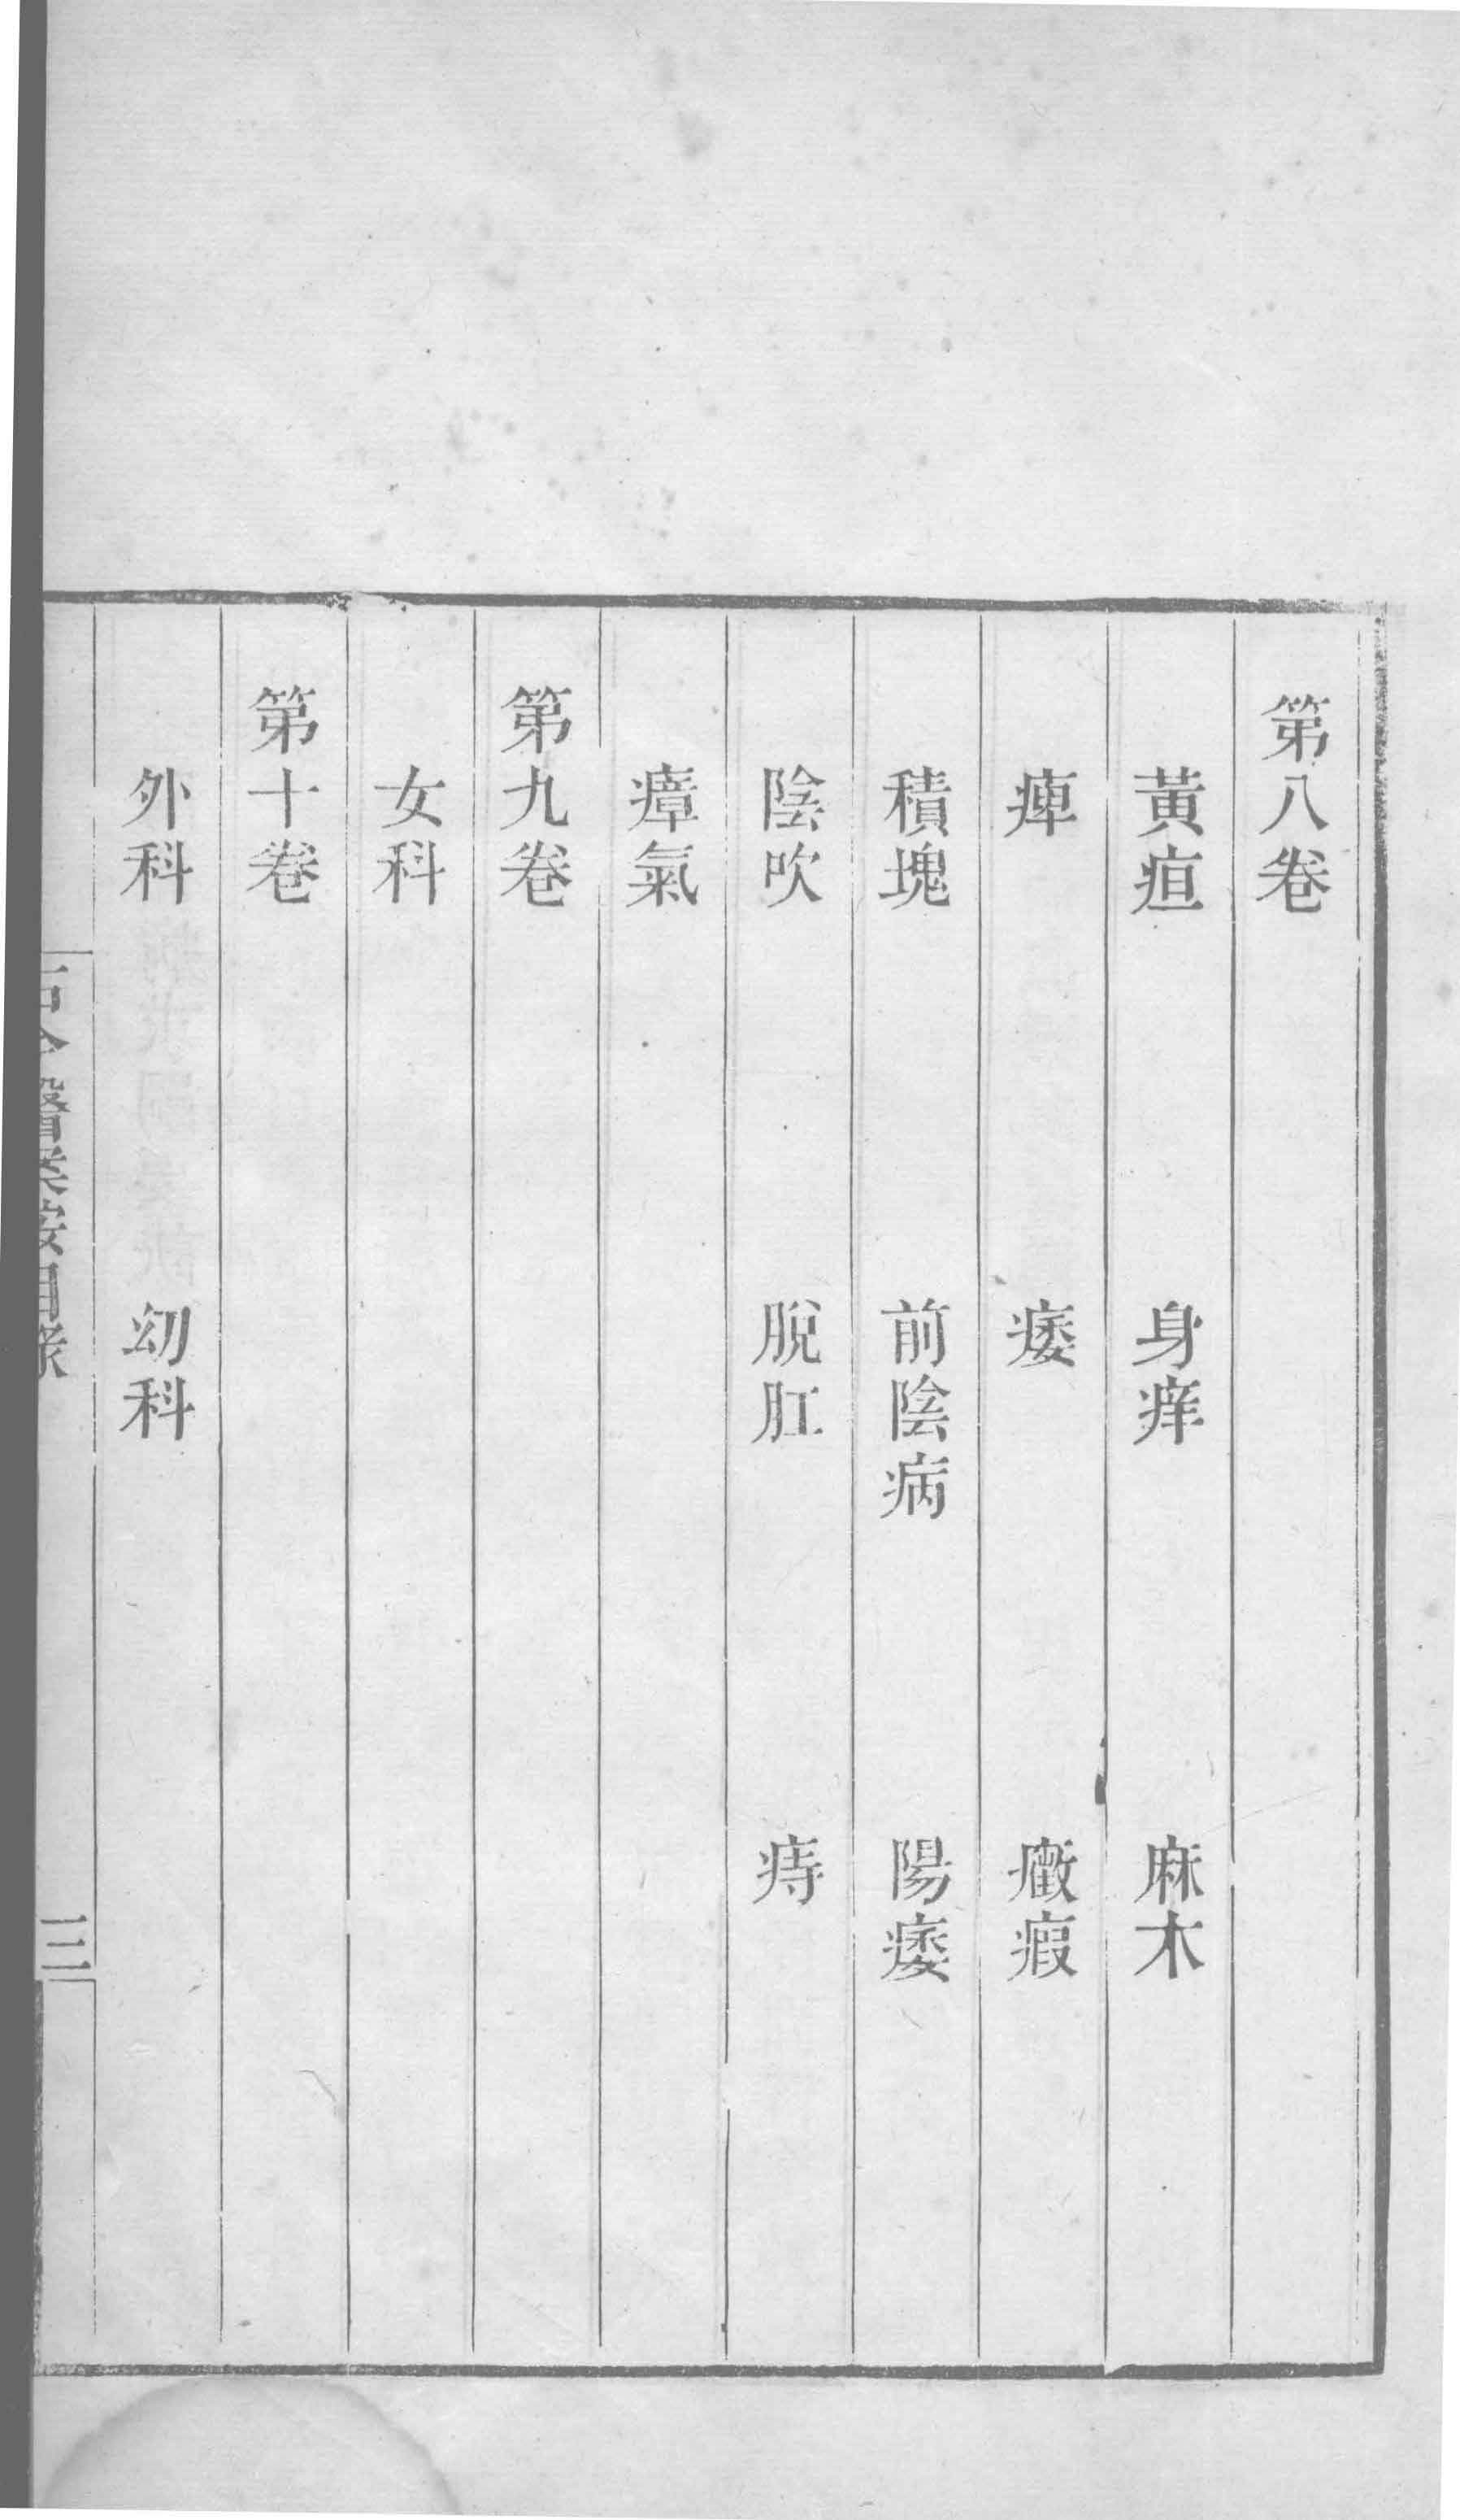 第八卷
黃疸　身痒　麻木
痺　痿　癥瘕
積塊　前陰病　陽痿
陰吹　脫肛　痔
瘴氣
第九卷
女科
第十卷
外科　幼科
古今醫案按目錄　三